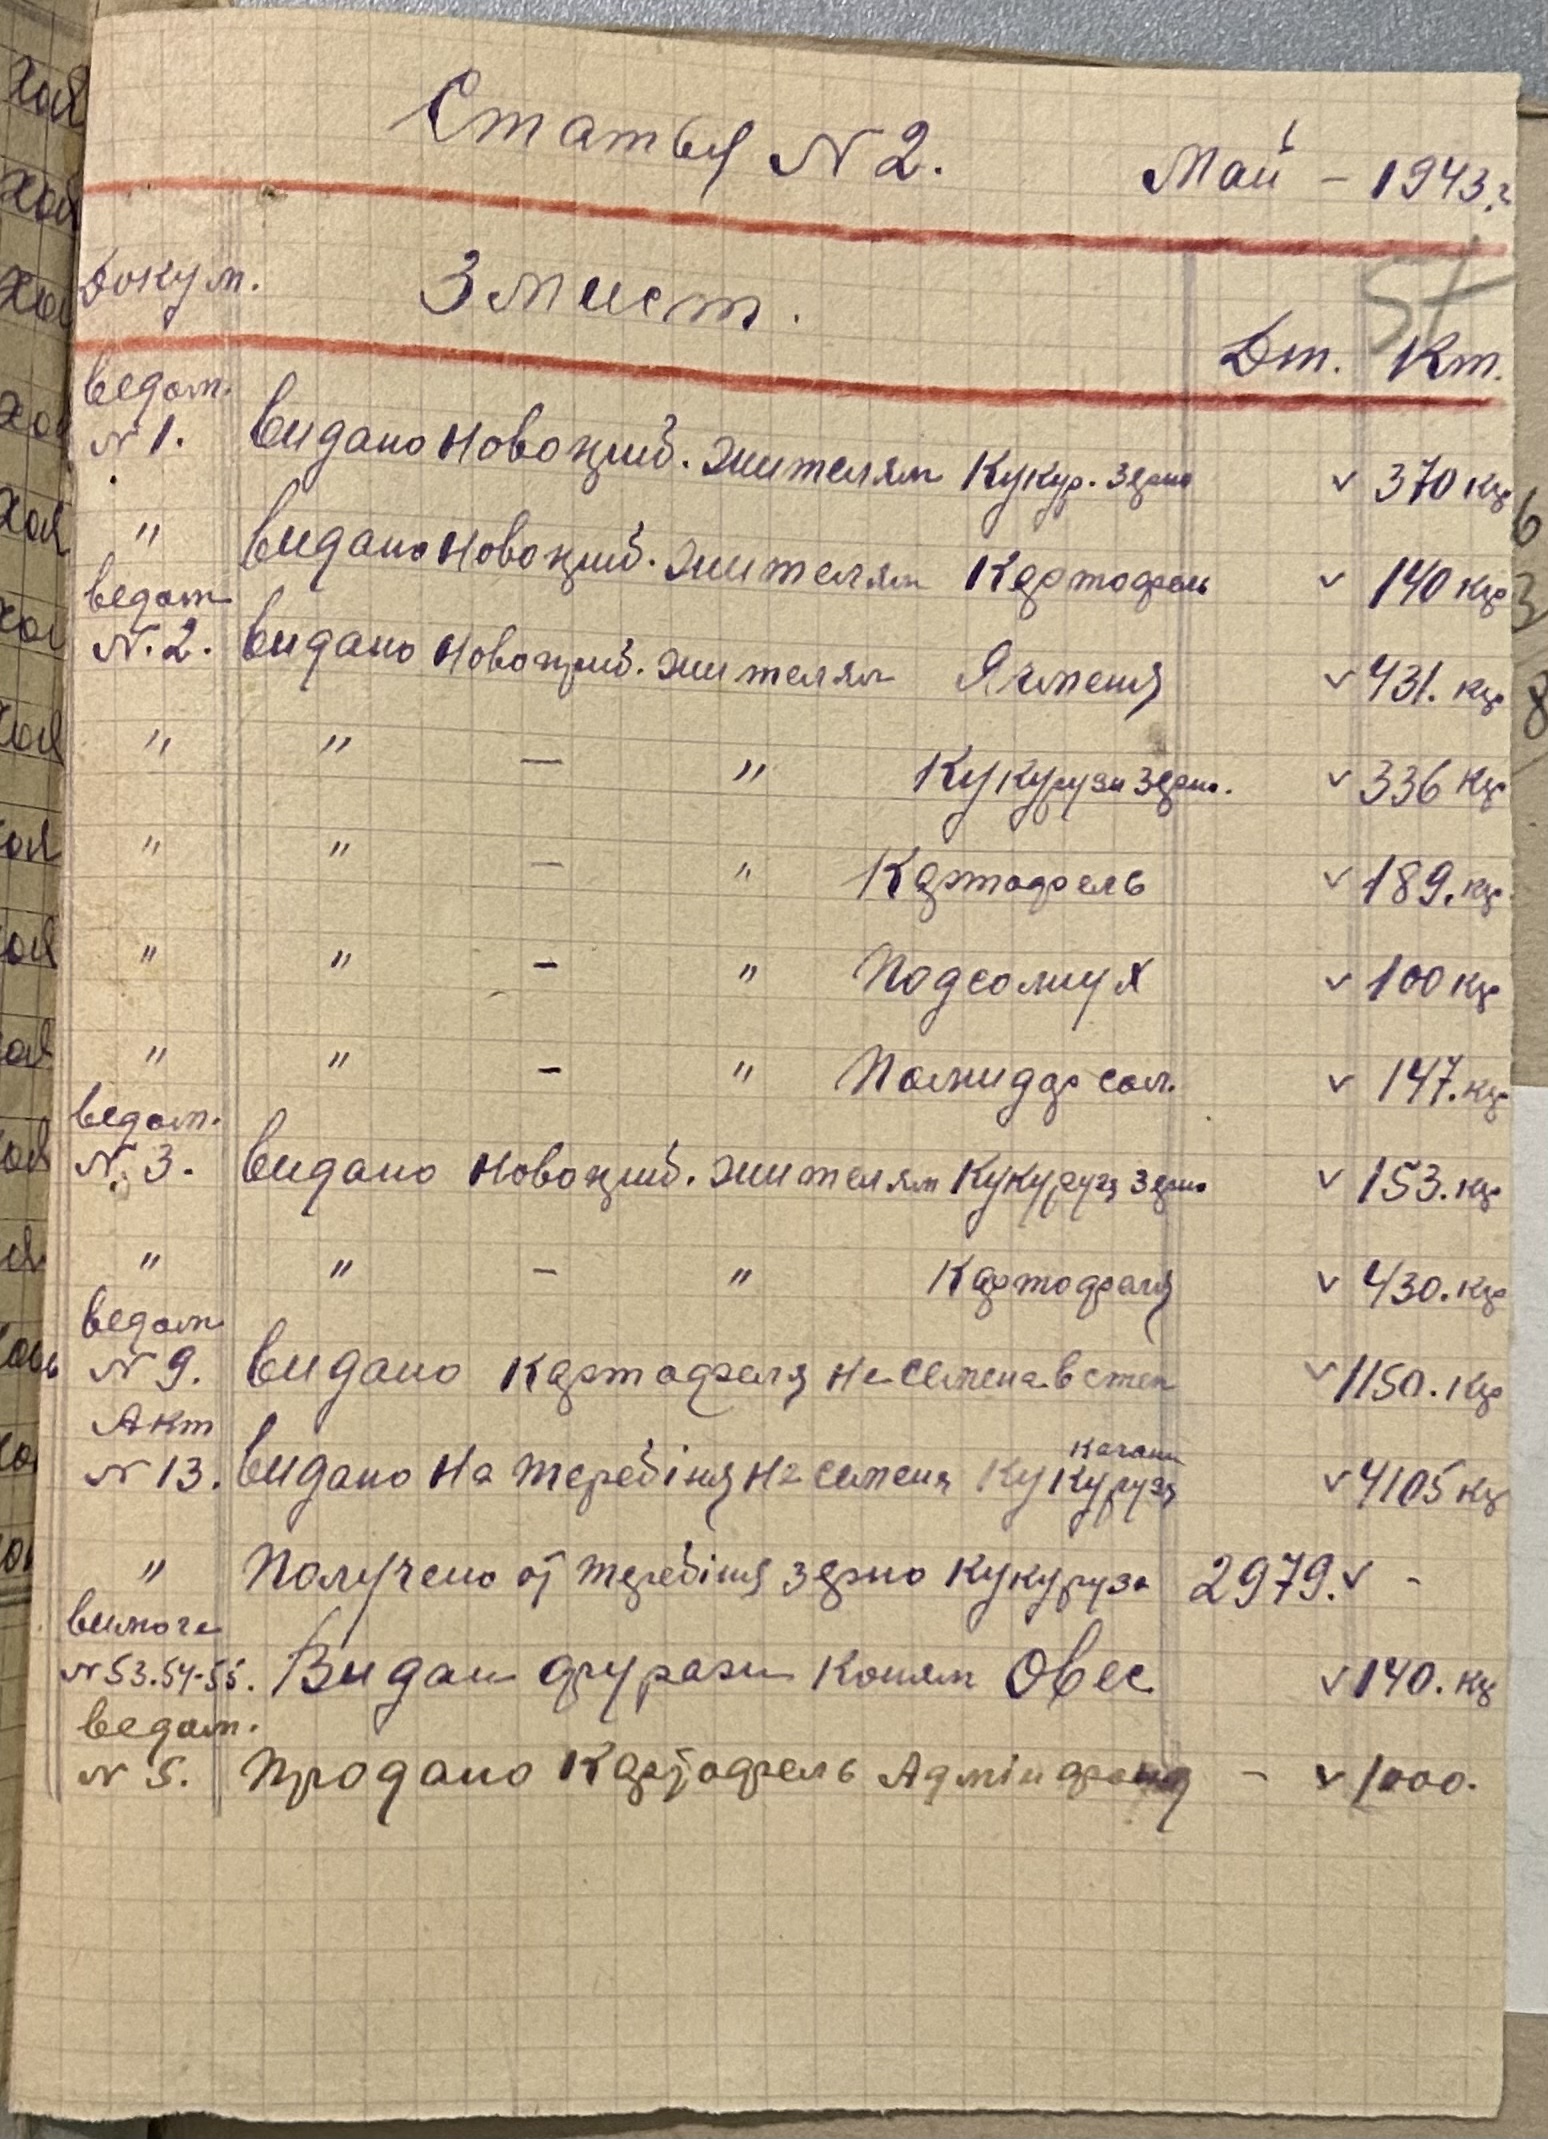 Статья N 2. Май - 1943.г
Докум. Змист. Дт. Кт.
ведом.
N 1. видано Новоприб. жителям Кукур. зерно 370 кгр
" видано Новоприб. жителям Картофель 140 кгр
ведом
N. 2. видано Новоприб. жителям Ячменя 431. кгр
" " — " Кукурузи зерно. 336 кгр
" " — " Картофель 189. кгр
" " - " Подсолнух 100 кгр
" " - " Помидор сол. 147. кгр
ведом.
N. 3. видано Новоприб. жителям Кукуруза зерно 153. кгр
" " - " Картофеля 430. кгр
ведом
N 9. видано картофеля на семена в степ 1150. кгр
Акт
N 13. видано на теребіня на семена Кукуруза качани 4105 кгр
" Получено от теребіня зерно кукуруза 2979. -
вимога
N 53.54-55. Видан фураж коням Овес 140. кгр
ведом.
N 5. Продано Картофель Адмін фонд - 1000.